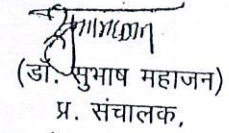 (डॉ. सुभाष महाजन)
प्र. संचालक,